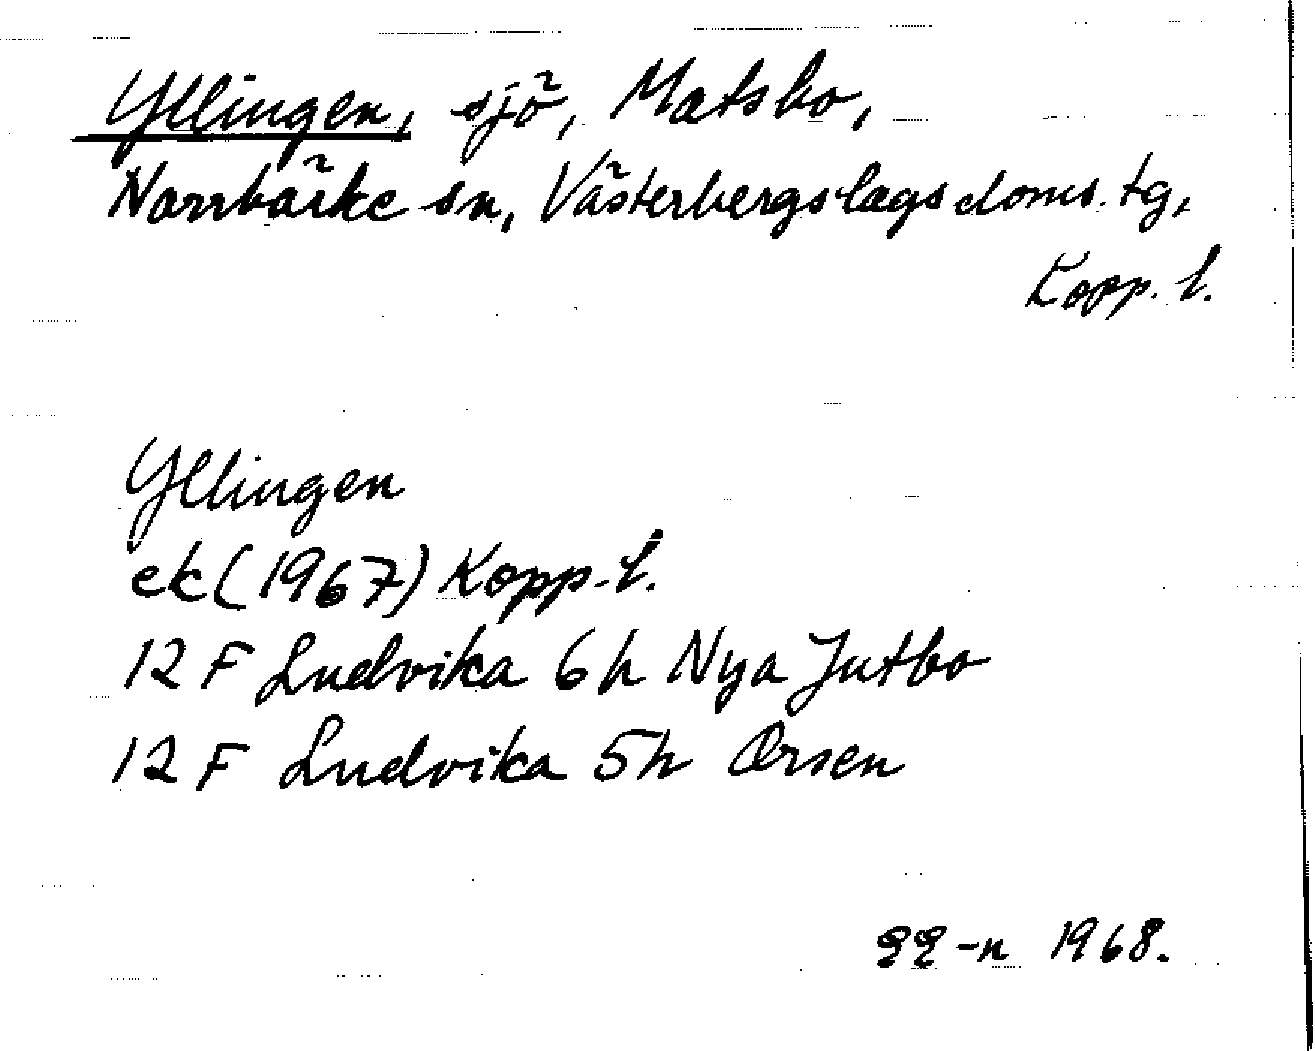 Yllingen, sjö, Matsbo,
Norrbärke sn, Västerbergslags doms. tg,
Kopp. l.
Yllingen
ek (1967) Kopp. l.
12 F Ludvika 6h Nya Jutbo
12 F Ludvika 5h Orsen
-n 1968.